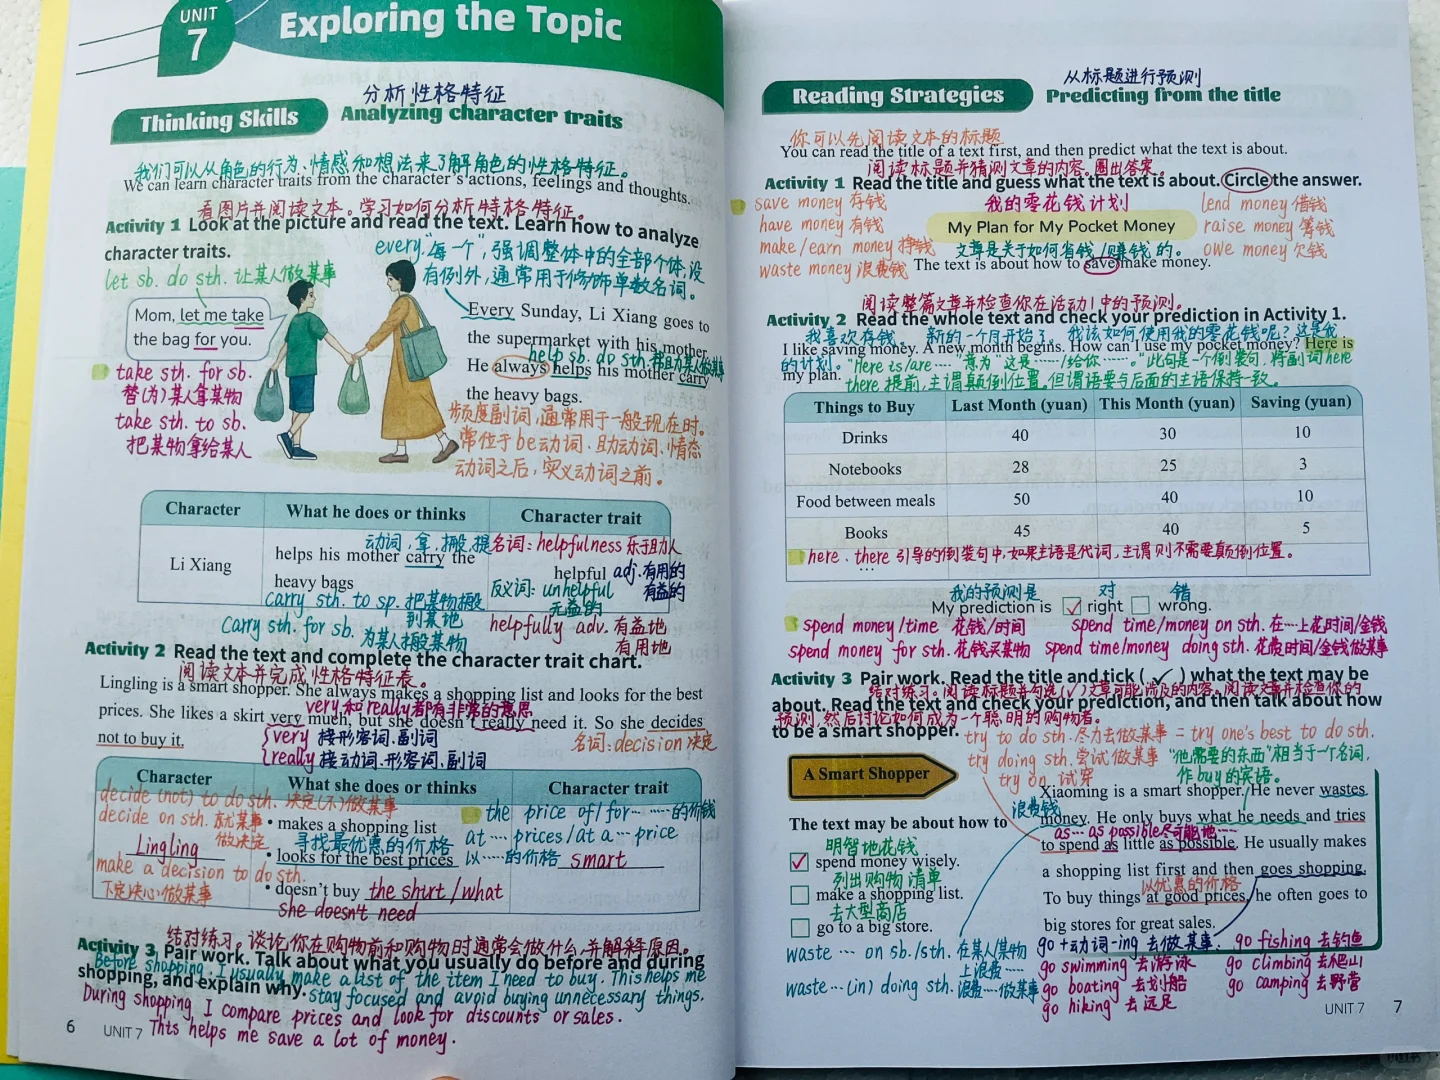 UNIT
7
Exploring the Topic
分析性格特征
Thinking Skills
Analyzing character traits
我们可以从角色的行为、情感和想法来了解角色的性格特征。
We can learn character traits from the character's actions, feelings and thoughts.
看图片并阅读文本。学习如何分析特格特征。
Activity 1 Look at the picture and read the text. Learn how to analyze
character traits.
every"每一个",强调整体中的全部个体,没
有例外,通常用于修饰单数名词。
let sb. do sth. 让某人做某事
Mom, let me take
the bag for you.
Every Sunday, Li Xiang goes to
the supermarket with his mother.
help sb. do sth. 帮助某人做某事
He always helps his mother carry
the heavy bags.
take sth. for sb.
替(为)某人拿某物
take sth. to sb.
把某物拿给某人
频度副词,通常用于一般现在时。
常位于be动词、助动词、情态
动词之后,实义动词之前。
Character What he does or thinks Character trait
动词,拿,搬,提
名词:helpfulness 乐于助人
Li Xiang
helps his mother carry the
heavy bags
helpful adj.有用的
有益的
反义词:unhelpful
无益的
carry sth. to sp. 把某物搬
到某地
carry sth. for sb. 为某人搬某物
helpfully adv. 有益地
有用地
Activity 2 Read the text and complete the character trait chart.
阅读文本并完成性格特征表。
Lingling is a smart shopper. She always makes a shopping list and looks for the best
very和really都有非常的意思
prices. She likes a skirt very much, but she doesn't really need it. So she decides
not to buy it.
very 接形容词、副词
really 接动词、形容词、副词
名词:decision 决定
Character What she does or thinks Character trait
decide (not) to do sth. 决定(不)做某事
decide on sth. 就某事
做决定
Lingling
make a decision to do sth.
下定决心做某事
• makes a shopping list
寻找最优惠的价格
• looks for the best prices
• doesn't buy the shirt/what
she doesn't need
the price of/for⋯⋯的价钱
at⋯prices/at a⋯price
以⋯⋯的价格
smart
结对练习。谈论你在购物前和购物时通常会做什么,并解释原因。
Activity 3 Pair work. Talk about what you usually do before and during
shopping, and explain why.
Before shopping, I usually make a list of the item I need to buy. This helps me
stay focused and avoid buying unnecessary things.
During shopping, I compare prices and look for discounts or sales.
This helps me save a lot of money.
6 UNIT 7
从标题进行预测
Reading Strategies
Predicting from the title
你可以先阅读文本的标题
You can read the title of a text first, and then predict what the text is about.
阅读标题并猜测文章的内容。圈出答案。
Activity 1 Read the title and guess what the text is about. Circle the answer.
save money 存钱
have money 有钱
make/earn money 挣钱
waste money 浪费钱
我的零花钱计划
My Plan for My Pocket Money
文章是关于如何省钱/赚钱的。
The text is about how to save/make money.
lend money 借钱
raise money 筹钱
owe money 欠钱
阅读整篇文章并检查你在活动1中的预测。
Activity 2 Read the whole text and check your prediction in Activity 1.
我喜欢存钱。 新的一个月开始了。我该如何使用我的零花钱呢?这是我
I like saving money. A new month begins. How can I use my pocket money? Here is
的计划。
my plan.
"Here is/are⋯⋯意为"这是⋯⋯/给你⋯⋯。"此句是一个倒装句,将副词here
there提前,主谓颠倒位置。但谓语要与后面的主语保持一致。
Things to Buy Last Month (yuan) This Month (yuan) Saving (yuan)
Drinks 40 30 10
Notebooks 28 25 3
Food between meals 50 40 10
Books 45 40 5
here、there引导的倒装句中,如果主语是代词,主谓则不需要颠倒位置。
...
我的预测是 对 错
My prediction is ☑ right ☐ wrong.
spend money/time 花钱/时间
spend time/money on sth. 在⋯上花时间/金钱
spend money for sth. 花钱买某物
spend time/money doing sth. 花费时间/金钱做某事
Activity 3 Pair work. Read the title and tick ( ✓ ) what the text may be
结对练习。阅读标题并勾选(✓)文章可能涉及的内容。阅读文章并检查你的
about. Read the text and check your prediction, and then talk about how
预测,然后讨论如何成为一个聪明的购物者。
to be a smart shopper.
try to do sth. 尽力去做某事 = try one's best to do sth.
try doing sth. 尝试做某事
try on 试穿
"他需要的东西"相当于一个名词,
作buy的宾语。
A Smart Shopper
The text may be about how to
明智地花钱
☑ spend money wisely.
列出购物清单
☐ make a shopping list.
去大型商店
☐ go to a big store.
Xiaoming is a smart shopper. He never wastes
浪费钱
money. He only buys what he needs and tries
as⋯as possible尽可能地⋯⋯
to spend as little as possible. He usually makes
a shopping list first and then goes shopping.
以优惠的价格
To buy things at good prices, he often goes to
big stores for great sales.
waste⋯on sb./sth. 在某人/某物
上浪费⋯⋯
waste⋯(in) doing sth. 浪费⋯做某事
go+动词-ing 去做某事:
go fishing 去钓鱼
go swimming 去游泳
go climbing 去爬山
go boating 去划船
go camping 去野营
go hiking 去远足
UNIT 7 7